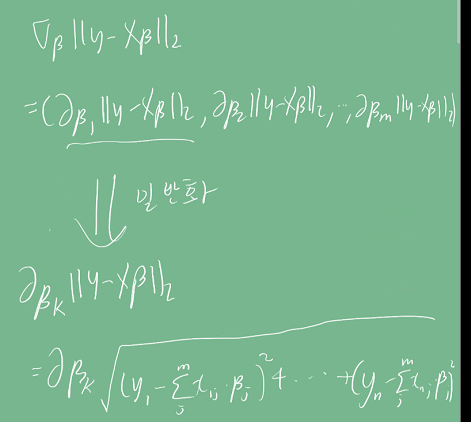 ∇β ||y-Xβ||₂
=(∂β₁||y-Xβ||₂, ∂β₂||y-Xβ||₂, ..., ∂βm||y-Xβ||₂)
⇓ 일반화
∂βK ||y-Xβ||₂
=∂βK √((y₁-∑ⱼᵐ x₁ⱼ·βⱼ)²+ ... +(yn-∑ⱼᵐ xnⱼ·βⱼ)²